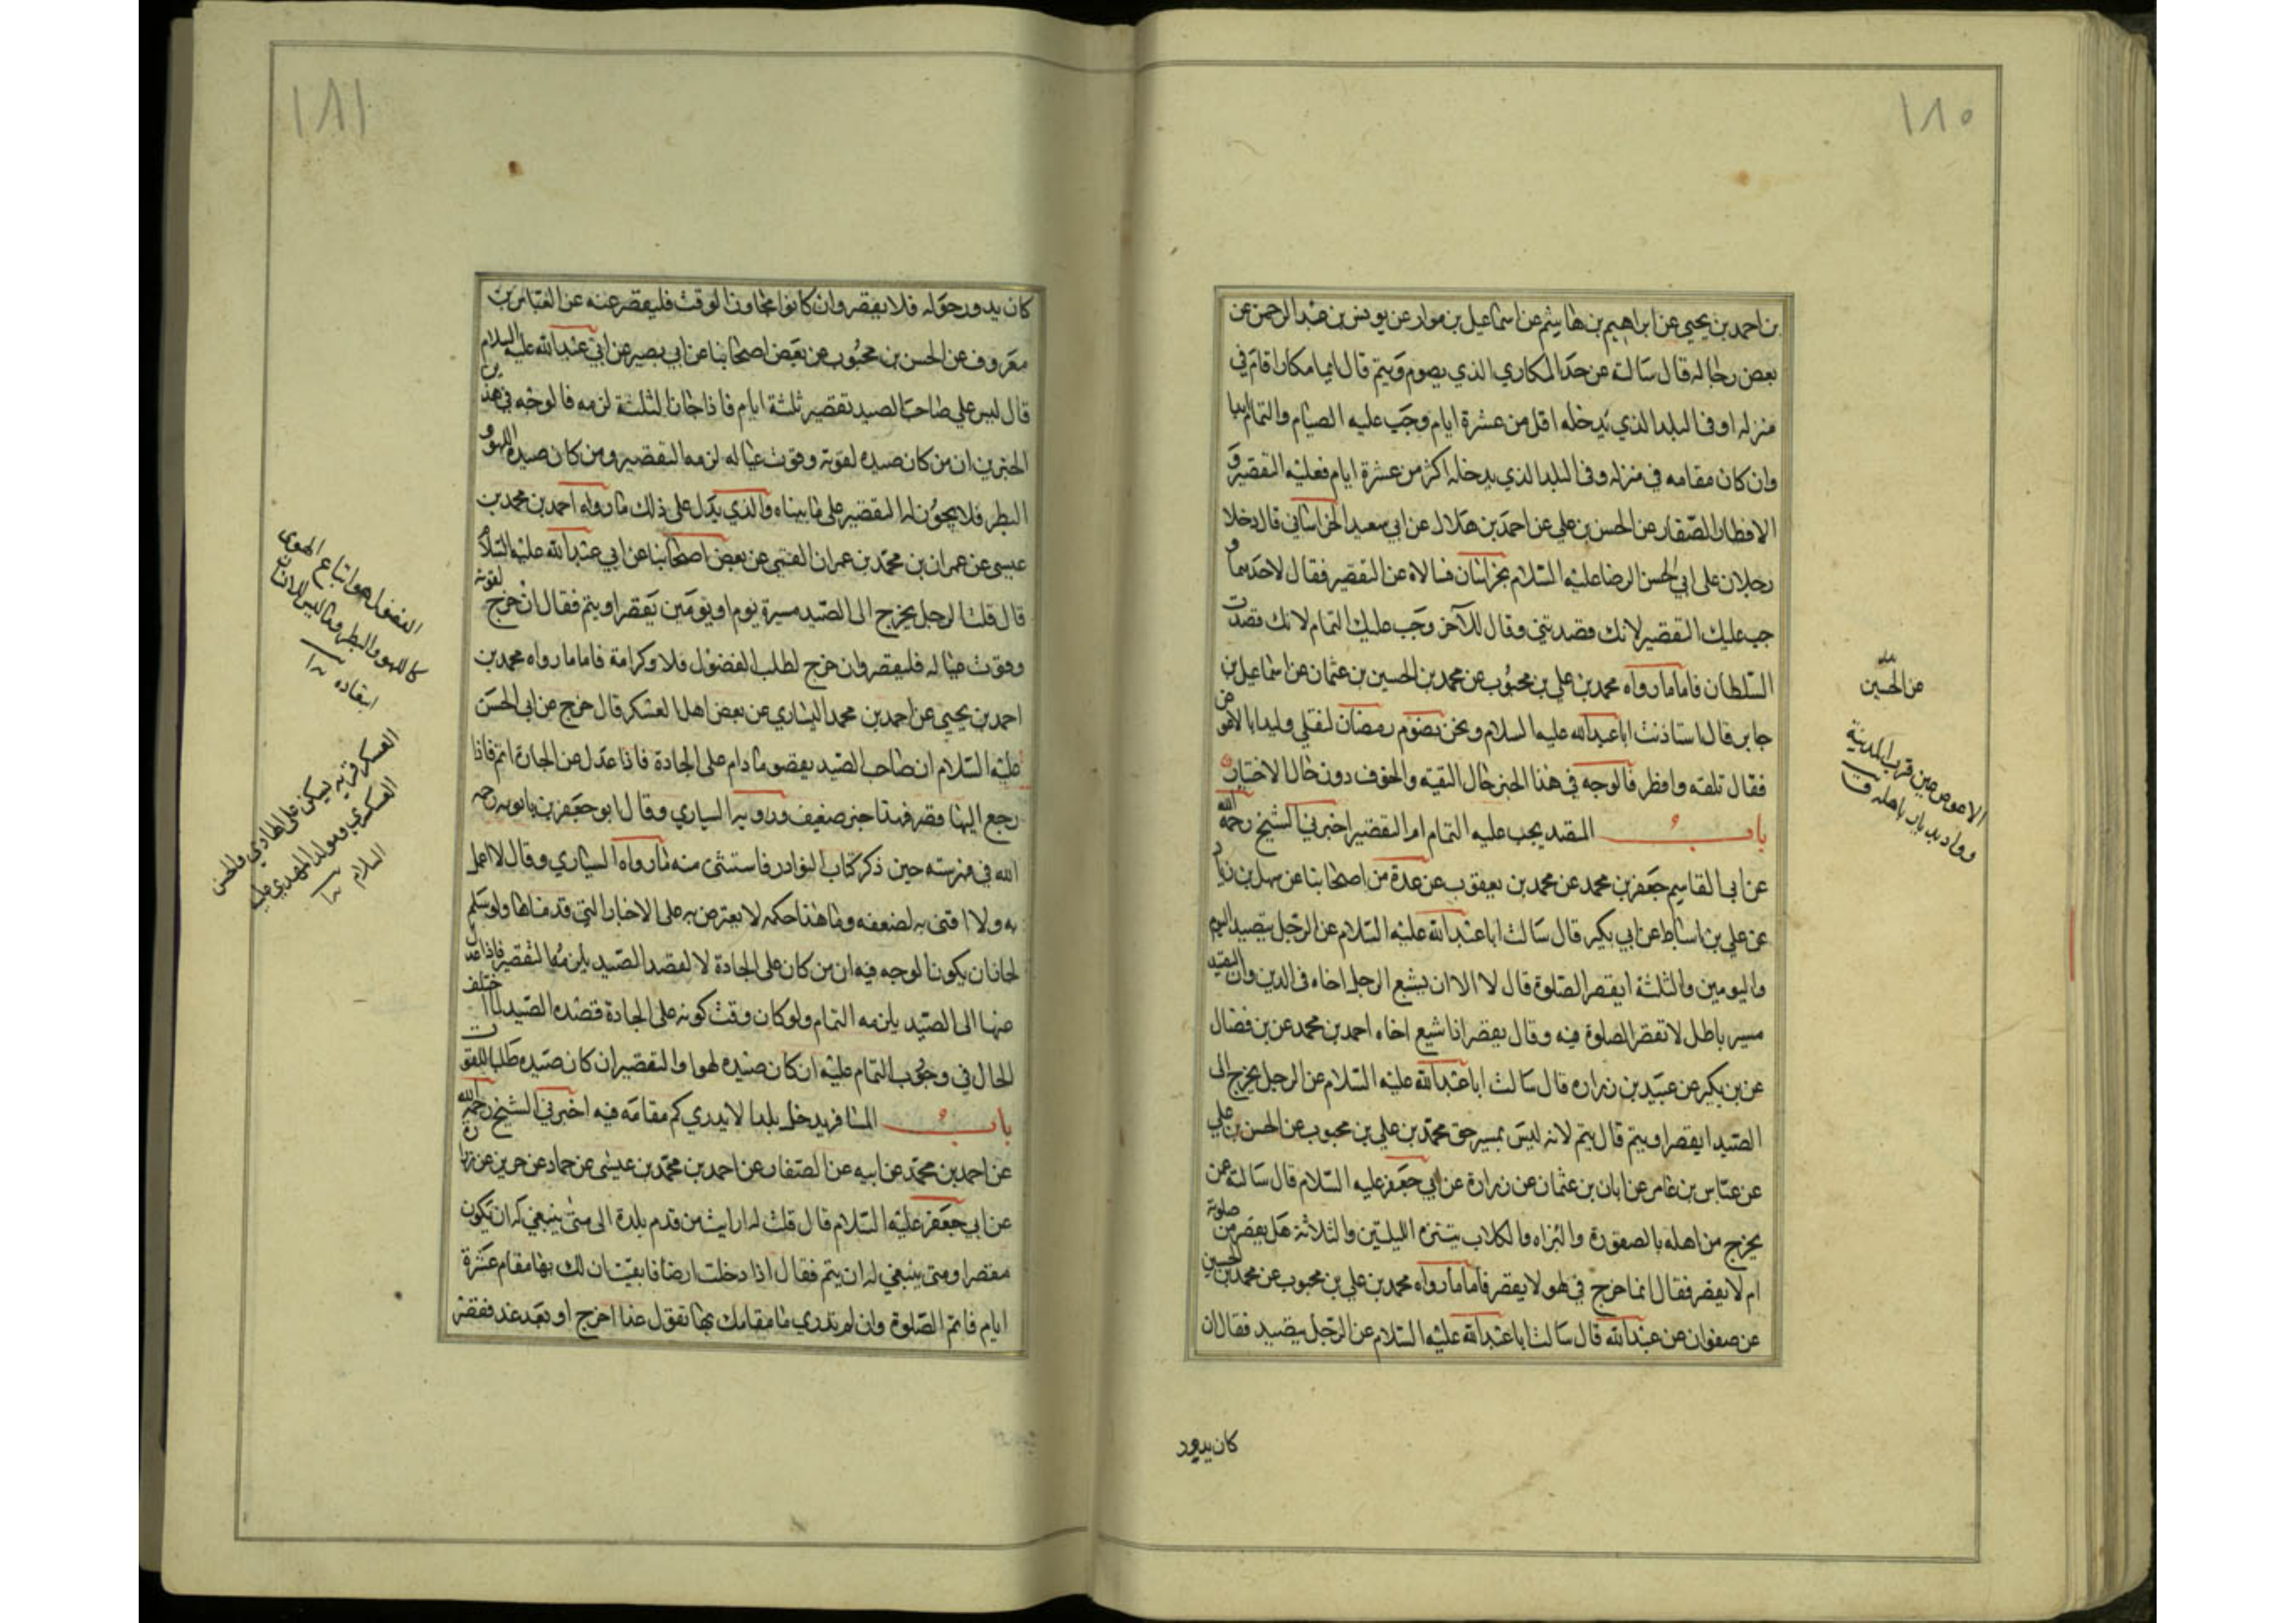 ١٨٠
بن احمد بن يحيي عن ابراهيم بن هاشم عن اسماعيل بن موار عن يونس بن عبد الرحمن عن
بعض رجاله قال سالته عن حد المكاري الذي يصوم ويتم قال ايما مكار اقام في
منزله او في البلد الذي يدخله اقل من عشرة ايام وجب عليه الصيام والتمام ابدا
وان كان مقامه في منزله وفي البلد الذي يدخله اكثر من عشرة ايام فعليه التقصير و
الافطار الصفار عن الحسن بن علي عن احمد بن هلال عن ابي سعيد الخراساني قال دخلا
رجلان على ابي الحسن الرضا عليه السلام بخراسان فسالاه عن التقصير فقال لاحدهما و
جب عليك التقصير لانك قصدتني وقال للآخر وجب عليك التمام لانك قصدت
السلطان فاما ما رواه محمد بن علي بن محبوب عن محمد بن الحسين بن عثمان عن اسماعيل بن
جابر قال استاذنت ابا عبد الله عليه السلام ونحن نصوم رمضان لنلقي وليدا بالاعوص
فقال تلقه وافطر فالوجه في هذا الخبر حال التقيه والخوف دون حال الاختيار
باب المتصيد يجب عليه التمام ام التقصير اخبرني الشيخ رحمه الله
عن ابي القاسم جعفر بن محمد عن محمد بن يعقوب عن عدة من اصحابنا عن سهل بن زياد
عن علي بن اسباط عن ابي بكير قال سالت ابا عبد الله عليه السلام عن الرجل يتصيد اليوم
واليومين والثلثة ايقصر الصلوة قال لا الا ان يشيع الرجل اخاه في الدين وان التصيد
مسير باطل لا تقصر الصلوة فيه وقال يقصر اذا شيع اخاه احمد بن محمد عن بن فضال
عن بن بكير عن عبيد بن زراره قال سالت ابا عبد الله عليه السلام عن الرجل يخرج الى
الصيد ايقصر او يتم قال يتم لانه ليس بمسير حق محمد بن علي بن محبوب عن الحسن بن علي
عن عباس بن عامر عن ابان بن عثمان عن زرارة عن ابي جعفر عليه السلام قال سالته عن
يخرج من اهله بالصقورة والبزاه والكلاب يتنزه الليلتين والثلاثة هل يقصر من صلوته
ام لا يقصر فقال انما خرج في لهو لا يقصر فاما ما رواه محمد بن علي بن محبوب عن محمد بن الحسين
عن صفوان عن عبد الله قال سالت ابا عبد الله عليه السلام عن الرجل يتصيد فقال ان
كان يدور
عن الحسين
الاعوص عين قرب المدينة
وواد بديار باهله ق
١٨١
كان يدور حوله فلا يقصر وان كانوا تجاوز الوقت فليقصر عنه عن العباس بن
معروف عن الحسن بن محبوب عن بعض اصحابنا عن ابي بصير عن ابي عبد الله عليه السلام
قال ليس على صاحب الصيد تقصير ثلثة ايام فاذا جاز الثلثة لزمه فالوجه في هذين
الخبرين ان من كان صيده لقوته وقوت عياله لزمه التقصير ومن كان صيده اللهو و
البطر فلا يجوز له التقصير على ما بيناه والذي يدل على ذلك ما رواه احمد بن محمد بن
عيسى عن عمران بن محمد بن عمران القمي عن بعض اصحابنا عن ابي عبد الله عليه السلام
قال قلت الرجل يخرج الى الصيد مسيرة يوم او يومين يقصر او يتم فقال ان خرج لقوته
وقوت عياله فليقصر وان خرج لطلب الفضول فلا وكرامة فاما ما رواه محمد بن
احمد بن يحيي عن احمد بن محمد السياري عن بعض اهل العسكر قال خرج عن ابي الحسن
عليه السلام ان صاحب الصيد يقصر ما دام على الجادة فاذا عدل عن الجادة اتم فاذا
رجع اليها قصر فهذا خبر ضعيف وراويه السياري وقال ابو جعفر بن بابويه رحمه
الله في فهرسته حين ذكر كتاب النوادر فاستثنى منه ما رواه السياري وقال لا اعمل
به ولا افتى به لضعفه وما هذا حكمه لا يعترض به على الاخبار التي قدمناها ولو سلم
لجاز ان يكون الوجه فيه ان من كان على الجادة لا لقصد الصيد يلزمه التقصير فاذا عدل
منها الى الصيد يلزمه التمام ولو كان وقت كونه على الجادة قصده الصيد لما اختلف
الحال في وجوب التمام عليه ان كان صيده لهوا والتقصير ان كان صيده طلبا للقوت
باب المسافر يدخل بلدا لا يدري كم مقامه فيه اخبرني الشيخ رحمه الله
عن احمد بن محمد عن ابيه عن الصفار عن احمد بن محمد بن عيسى عن حماد عن حريز عن زرارة
عن ابي جعفر عليه السلام قال قلت له ارايت من قدم بلدة الى متى ينبغي له ان تكون
مقصرا ومتى ينبغي له ان يتم فقال اذا دخلت ارضا فايقنت ان لك بها مقام عشرة
ايام فاتم الصلوة وان لم تدري ما مقامك بها تقول غدا اخرج او بعد غد فقصر
الفضول هو اتباع الهوى
كاللهو والبطر
العسكر قريه يسكن على الهادي والحسن
العسكري ومولد المهدي عليه
السلام